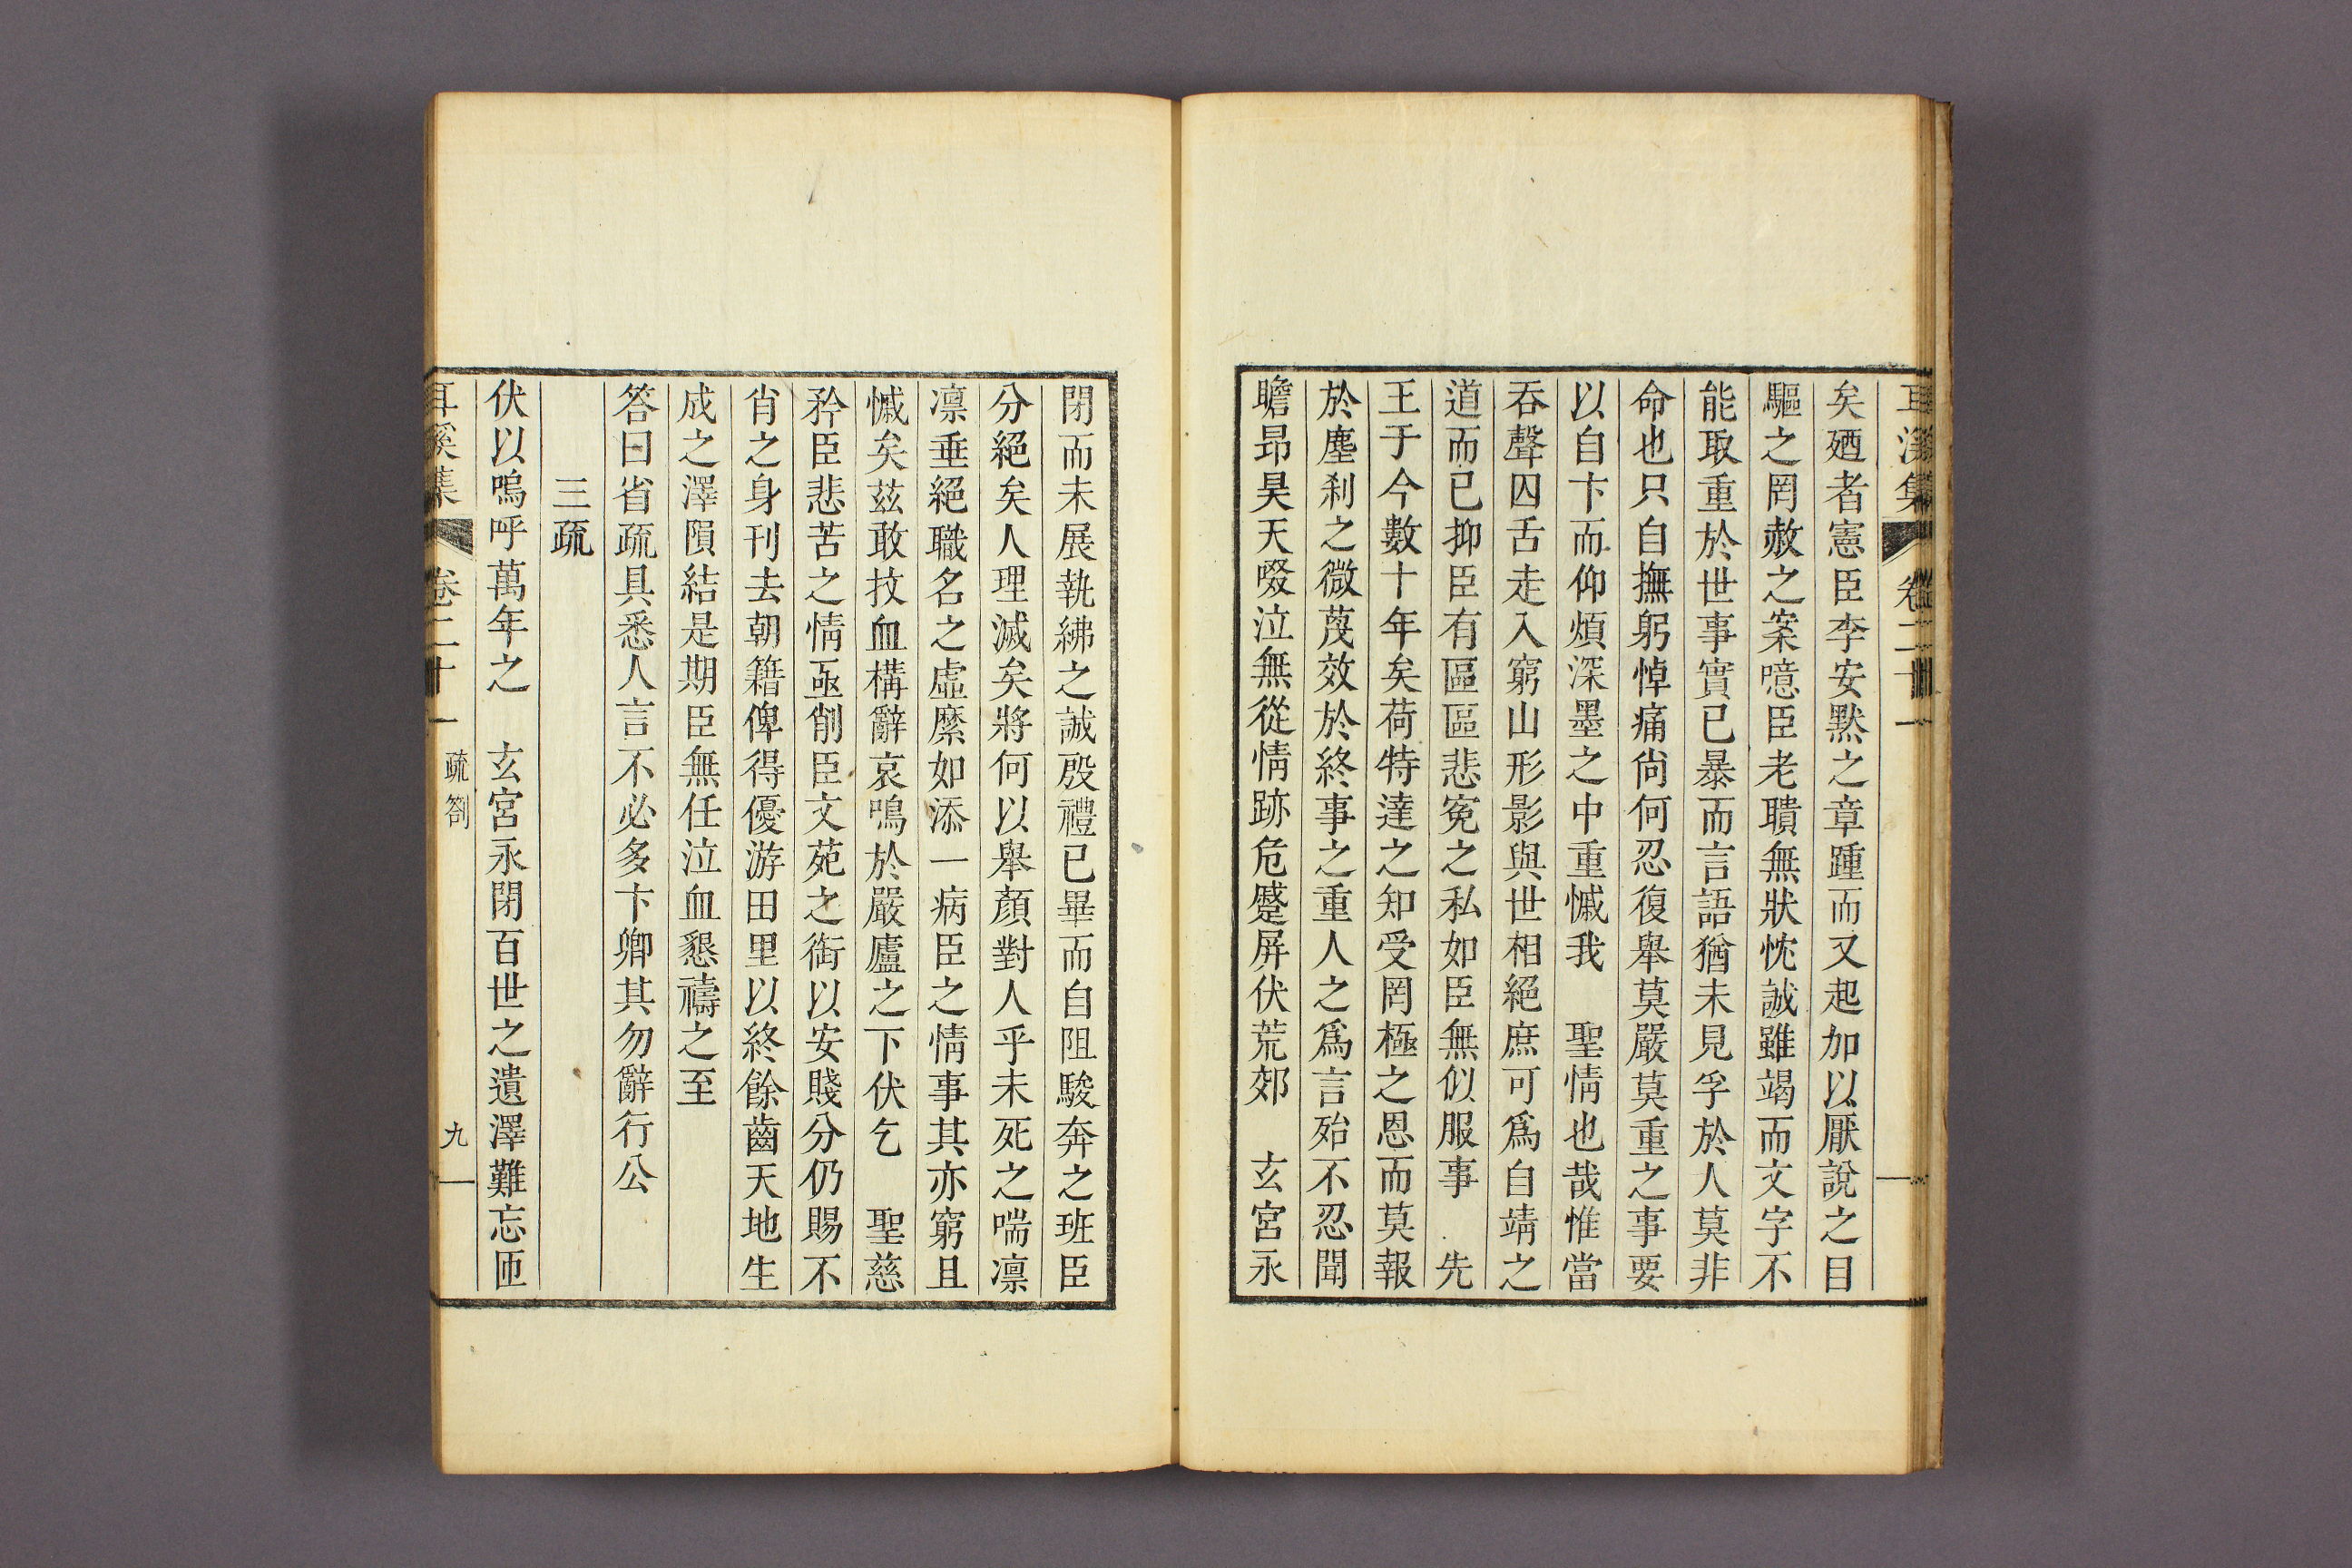 耳溪集 卷二十一
矣廼者憲臣李安黙之章踵而又起加以厭說之目
驅之罔赦之案噫臣老聵無狀忱誠雖竭而文字不
能取重於世事實已暴而言語猶未見孚於人莫非
命也只自撫躬悼痛尙何忍復舉莫嚴莫重之事要
以自卞而仰煩深墨之中重慽我 聖情也哉惟當
吞聲囚舌走入窮山形影與世相絕庶可爲自靖之
道而已抑臣有區區悲寃之私如臣無似服事 先
王于今數十年矣荷特達之知受罔極之恩而莫報
於塵刹之微蔑效於終事之重人之爲言殆不忍聞
瞻昻昊天啜泣無從情跡危蹙屛伏荒郊 玄宮永
閉而未展執紼之誠殷禮已畢而自阻駿奔之班臣
分絕矣人理滅矣將何以舉顏對人乎未死之喘凛
凛垂絕職名之虛縻如添一病臣之情事其亦窮且
慽矣茲敢抆血構辭哀鳴於嚴廬之下伏乞 聖慈
矜臣悲苦之情亟削臣文苑之銜以安賤分仍賜不
肖之身刊去朝籍俾得優游田里以終餘齒天地生
成之澤隕結是期臣無任泣血懇禱之至
答曰省疏具悉人言不必多卞卿其勿辭行公
三疏
伏以嗚呼萬年之 玄宮永閉百世之遺澤難忘匝
耳溪集 卷二十一 疏劄 九